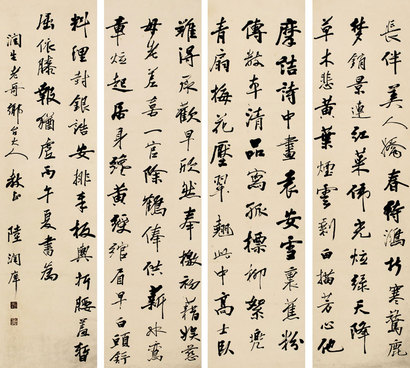 長伴美人嬌鴻升寒驚鹿
夢銷景遠紅葉佛光炫綠天降
草木悲黃葉煙雲剩白描芳心他
摩詰詩中畫袁安雪裏蕉粉
傳清品寫孤標柳絮
青扇梅花壓翠翹此中高士臥
難得承歡早欣然奉檄初藉娛慈
母老差喜一官除鶴俸供薪水鸞
章炫起居身纔黃綬綰眉早白頭舒
料理封銀誥安排奉板輿折腰羞暫
屈依膝報猶虛丙午夏書為
潤生老哥鄉台大人教正
陸潤庠